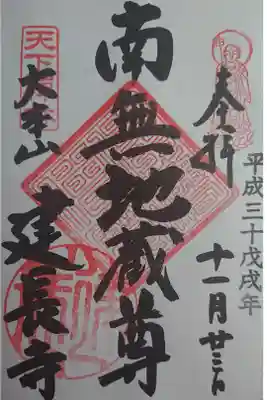 奉拝
平成三十戊戌年
十一月廿三日
南無地蔵尊
天下
大本山
建長寺